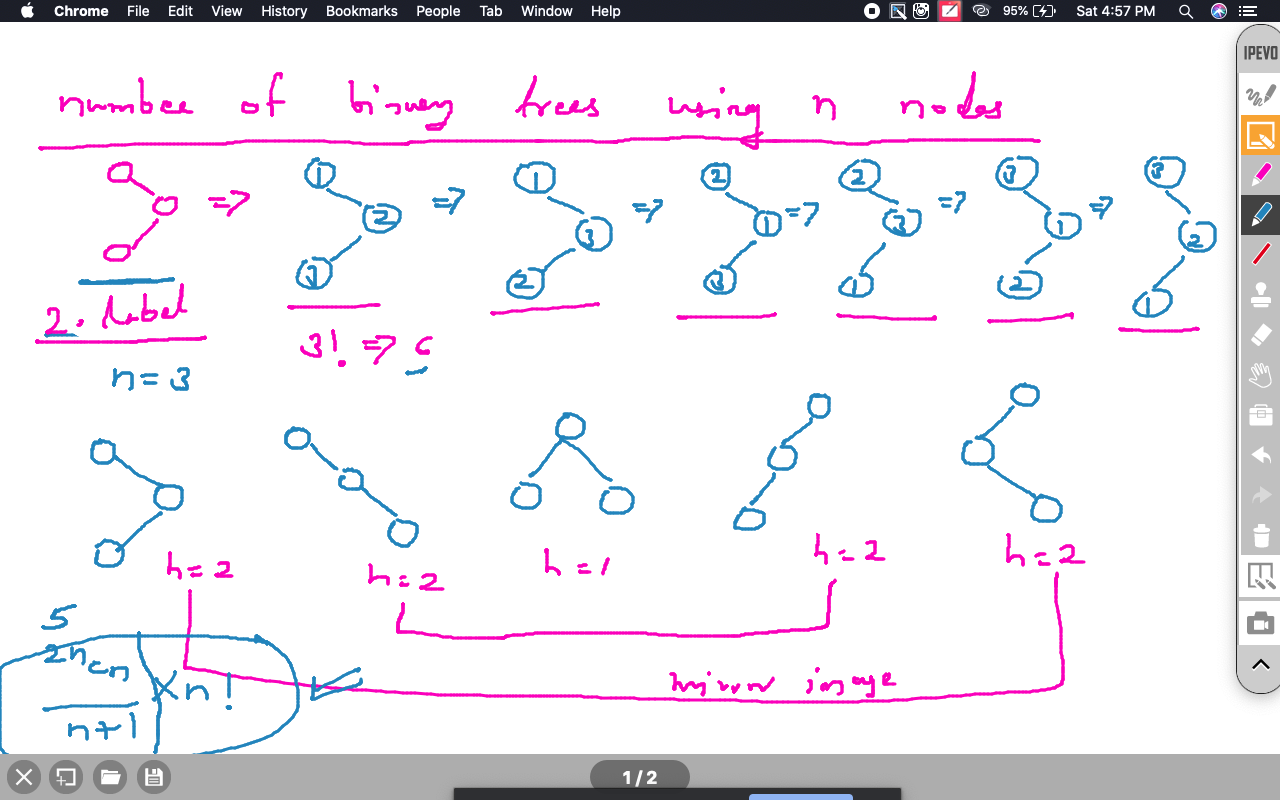 Chrome File Edit View History Bookmarks People Tab Window Help 95% Sat 4:57 PM
IPEVO
number of binary trees using n nodes
=> 1 2 3 => 1 3 2 => 2 1 3 => 2 3 1 => 3 1 2 => 3 2 1
2. Label
3! => 6
n = 3
h = 2 h = 2 h = 1 h = 2 h = 2
5
2n c n
n + 1
× n !
mirror image
1 / 2